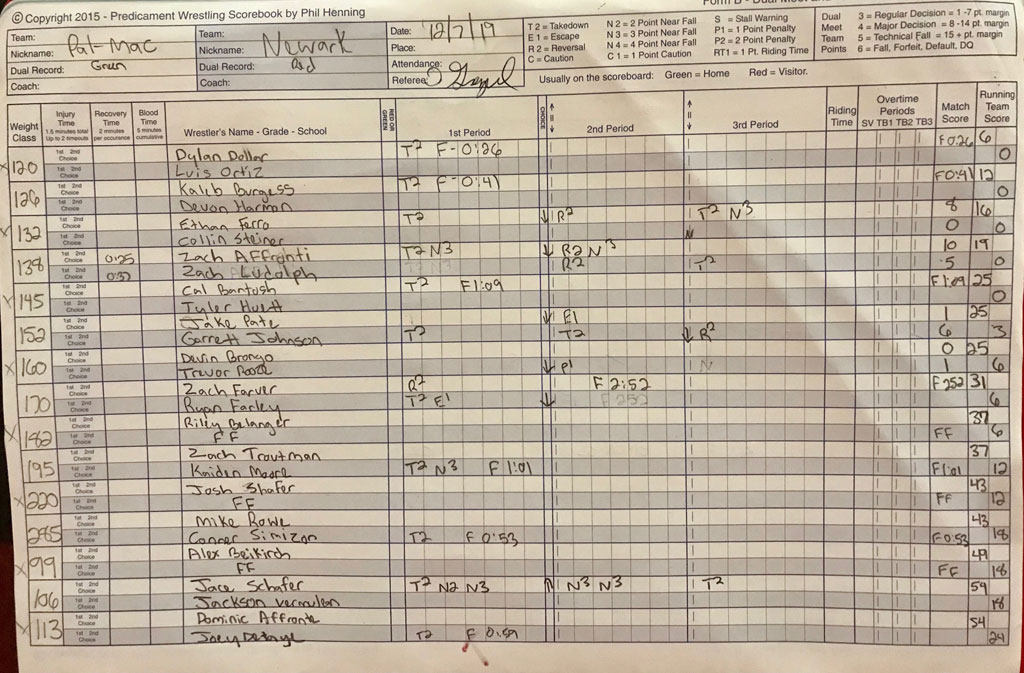 © Copyright 2015 - Predicament Wrestling Scorebook by Phil Henning
Team: Pal-Mac
Nickname:
Dual Record: Green
Coach:
Team: Newark
Nickname:
Dual Record: Red
Coach:
Date: 12/7/19
Place:
Attendance:
Referee:
T 2 = Takedown
E 1 = Escape
R 2 = Reversal
C = Caution
N 2 = 2 Point Near Fall
N 3 = 3 Point Near Fall
N 4 = 4 Point Near Fall
C 1 = 1 Point Caution
S = Stall Warning
P1 = 1 Point Penalty
P2 = 2 Point Penalty
RT1 = 1 Pt. Riding Time
Dual Meet Team Points
3 = Regular Decision = 1 -7 pt. margin
4 = Major Decision = 8 -14 pt. margin
5 = Technical Fall = 15 + pt. margin
6 = Fall, Forfeit, Default, DQ
Usually on the scoreboard: Green = Home Red = Visitor.
Weight Class
Injury Time 1.5 minutes total Up to 2 timeouts
Recovery Time 2 minutes per occurance
Blood Time 5 minutes cumulative
Wrestler's Name - Grade - School
RED OR GREEN
1st Period
CHOICE
2nd Period
3rd Period
Riding Time
Overtime Periods
SV TB1 TB2 TB3
Match Score
Running Team Score
120 1st 2nd Choice Dylan Dollar T2 F-0:26 F0:26 6
1st 2nd Choice Luis Ortiz 0
126 1st 2nd Choice Kaleb Burgess T2 F-0:41 F0:41 12
1st 2nd Choice Devon Harman 0
132 1st 2nd Choice Ethan Ferro T2 ↓ R2 T2 N3 8 16
1st 2nd Choice Collin Steiner N 0 0
138 1st 2nd Choice 0:25 Zach Affronti T2 N3 ↓ R2 N3 10 19
1st 2nd Choice 0:37 Zach Ludolph R2 T2 5 0
145 1st 2nd Choice Cal Bantush T2 F1:09 F1:09 25
1st 2nd Choice Tyler Huett 0
152 1st 2nd Choice Jake Pate ↓ E1 1 25
1st 2nd Choice Garrett Johnson T2 T2 ↓ R2 6 3
160 1st 2nd Choice Devin Brongo 0 25
1st 2nd Choice Trevor ↓ P1 N 1 6
170 1st 2nd Choice Zach Farver R2 F 2:52 F252 31
1st 2nd Choice Ryan Farley T2 E1 ↓ F 252 6
182 1st 2nd Choice Riley Belanger 37
1st 2nd Choice FF FF 6
195 1st 2nd Choice Zach Trautman 37
1st 2nd Choice Kaiden Moore T2 N3 F 1:01 F1:01 12
220 1st 2nd Choice Josh Shafer 43
1st 2nd Choice FF FF 12
285 1st 2nd Choice Mike Rowe 43
1st 2nd Choice Conner Simizon T2 F 0:53 F0:53 18
99 1st 2nd Choice Alex Beikirch 49
1st 2nd Choice FF FF 18
106 1st 2nd Choice Jace Schafer T2 N2 N3 ↑ N3 N3 T2 54
1st 2nd Choice Jackson Vermulen 18
113 1st 2nd Choice Dominic Affronte 54
1st 2nd Choice Joey T2 F 0:59 24